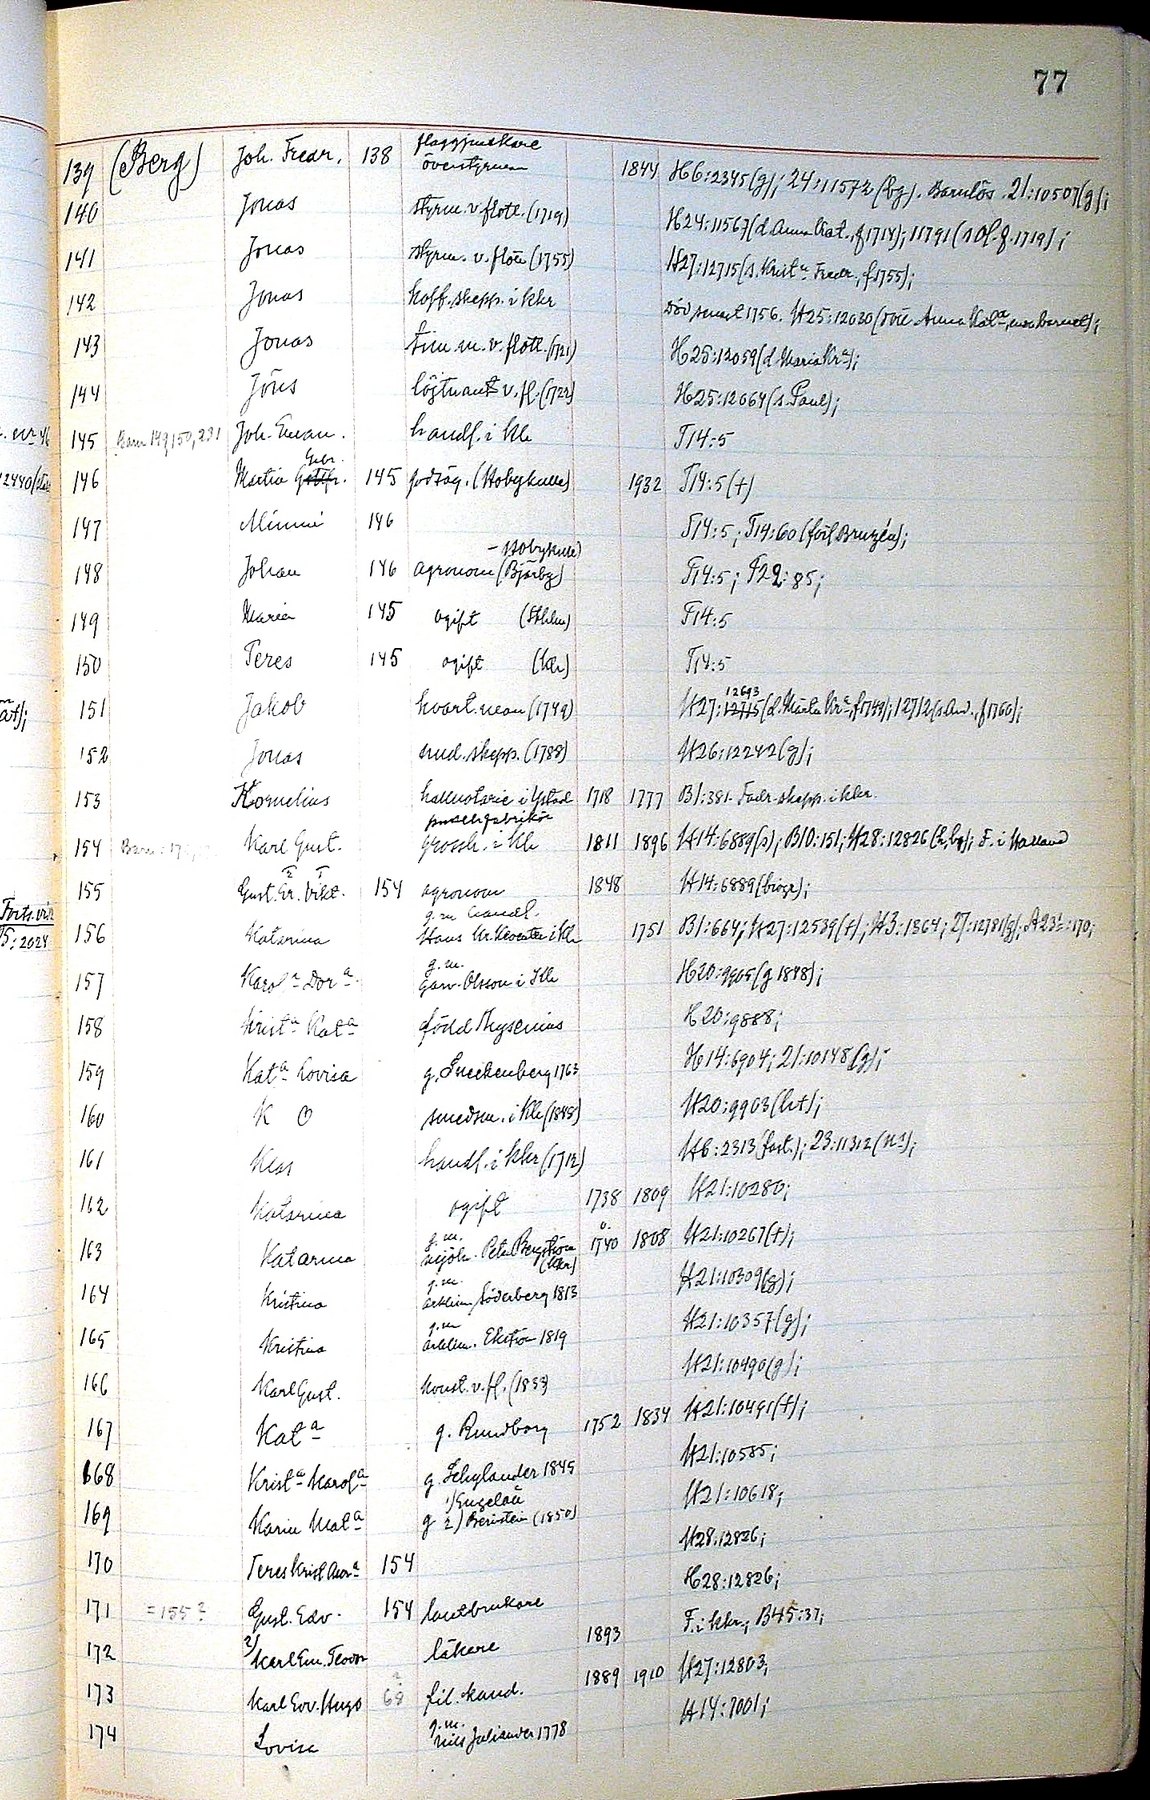 77
139 (Berg) Joh. Fredr. 138 flaggjunkare överstyrman 1844 H6:2345(g); 24:11572(bg). Barnlös. 21:10507(g);
140 Jonas styrm. v. flott. (1719) H24:11567(d. Anna Kat., f 1714); 11791(s Ol. f. 1719);
141 Jonas styrm. v. flott. (1755) H27:12715(s. Krist.ⁿ Fredr., f 1755);
142 Jonas koff. skepp. i kkr död senast 1756. H25:12030( Anna Kat.ᵃ,
143 Jonas tim. m. v. flott. (1721) H25:12059(d. Maria Kr.ᵃ);
144 Jöns löjtnant v. fl. (1722) H25:12064(s. Paul);
145 Barn 149, 150, 231 Joh. Eman. handl. i kh T14:5
146 Martin Gebr. 145 godsäg. (Stobykulla) 1932 T14:5(†)
147 Minni 146 T14:5; T14:60(född Bruzén);
148 Johan 146 agronom (Björby) – Stobykulla) T14:5; F22:85;
149 Maria 145 ogift (Sthlm) T14:5
150 Teres 145 ogift T14:5
151 Jakob kvart. man (1749) H27: 12693 (d. Märta Kr.ᵃ, f 1749); 12712(s. And., f 1760);
152 Jonas und. skepp. (1788) H26:12242(g);
153 Kornelius hallnotarie i Ystad 1718 1777 B1:381. Fadr. skepp. i kkr.
154 Barn: Karl Gust. punschfabrikör grossh. i kh 1811 1896 H14:6889(s); B10:151; H28:12826(h, bg); F. i Halland
155 Gust. Er. Vikt. 154 agronom 1848 H14:6889(biogr);
156 Katarina g.m. handl. Hans Kr. i kh 1751 B1:664; H27:12539(†); H3:1364; 27:12781(g); A23:170;
157 Karol.ⁿ Dor.ᵃ g.m. garv. Olsson i Kh H20:9905(g 1848);
158 Krist.ᵃ Kat.ᵃ född Thysenius H20:9888;
159 Kat.ᵃ Lovisa g. Sneckenberg 1763 H14:6904; 21:10148(g);
160 K O smedsm. i kh (1845) H20:9903(h†);
161 Klas handl. i kkr (1712) H6:2313(fast.); 23:11312(nᵃ);
162 Katarina ogift 1738 1809 H21:10280;
163 Katarina g.m. mjöln. Peter Bergström (kkr) o. 1740 1808 H21:10267(†);
164 Kristina g.m. Söderberg 1813 H21:10309(g);
165 Kristina g.m. Ekström 1819 H21:10357(g);
166 Karl Gust. konst. v. fl. (1833) H21:10490(g);
167 Kat.ᵃ g. Rundborg 1752 1834 H21:10491(†);
168 Krist.ᵃ Karol.ᵃ g. Schylander 1845 H21:10585;
169 Karin Mat.ᵃ g 1) Engelau 2) Bernstein (1850) H21:10618;
170 Teres Krist. Aur.ᵃ 154 H28:12826;
171 = 155? Gust. Edv. 154 lantbrukare H28:12826;
172 2) Karl Em. Teodor läkare 1893 F. i kkr; B45:37;
173 Karl Edv. Hugo 68 fil. kand. 1889 1910 H27:12803;
174 Lovisa g.m. Nils Juliander 1778 H14:7001;